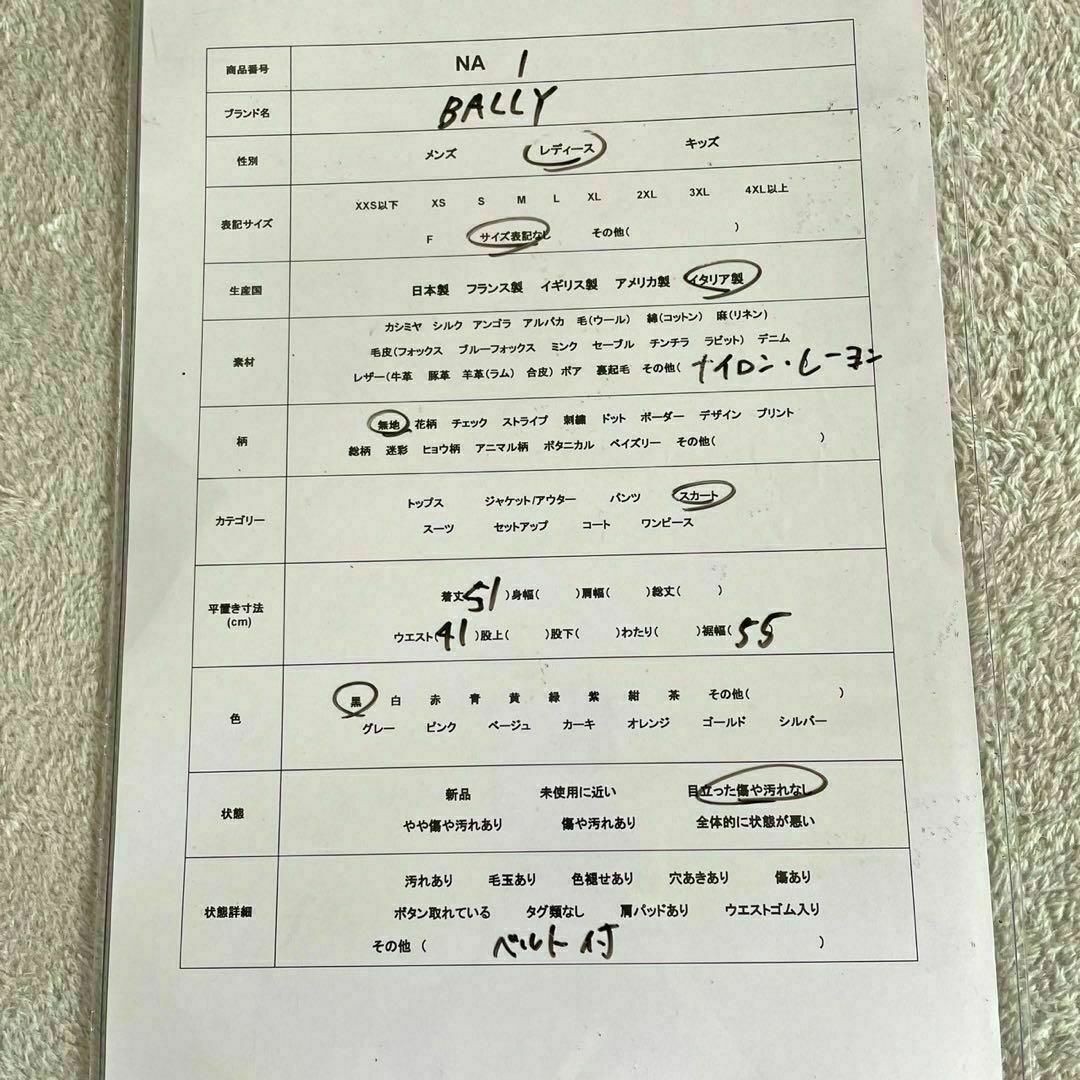 商品番号 NA 1
ブランド名 BALLY
性別 メンズ レディース キッズ
表記サイズ XXS以下 XS S M L XL 2XL 3XL 4XL以上
F サイズ表記なし その他( )
生産国 日本製 フランス製 イギリス製 アメリカ製 イタリア製
素材 カシミヤ シルク アンゴラ アルパカ 毛(ウール) 綿(コットン) 麻(リネン)
毛皮(フォックス ブルーフォックス ミンク セーブル チンチラ ラビット) デニム
レザー(牛革 豚革 羊革(ラム) 合皮) ボア 裏起毛 その他( ナイロン・レーヨン
柄 無地 花柄 チェック ストライプ 刺繍 ドット ボーダー デザイン プリント
総柄 迷彩 ヒョウ柄 アニマル柄 ボタニカル ペイズリー その他( )
カテゴリー トップス ジャケット/アウター パンツ スカート
スーツ セットアップ コート ワンピース
平置き寸法 (cm) 着丈 51 )身幅( )肩幅( )総丈( )
ウエスト( 41 )股上( )股下( )わたり( )裾幅( 55 )
色 黒 白 赤 青 黄 緑 紫 紺 茶 その他( )
グレー ピンク ベージュ カーキ オレンジ ゴールド シルバー
状態 新品 未使用に近い 目立った傷や汚れなし
やや傷や汚れあり 傷や汚れあり 全体的に状態が悪い
状態詳細 汚れあり 毛玉あり 色褪せあり 穴あきあり 傷あり
ボタン取れている タグ類なし 肩パッドあり ウエストゴム入り
その他 ( ベルト付 )